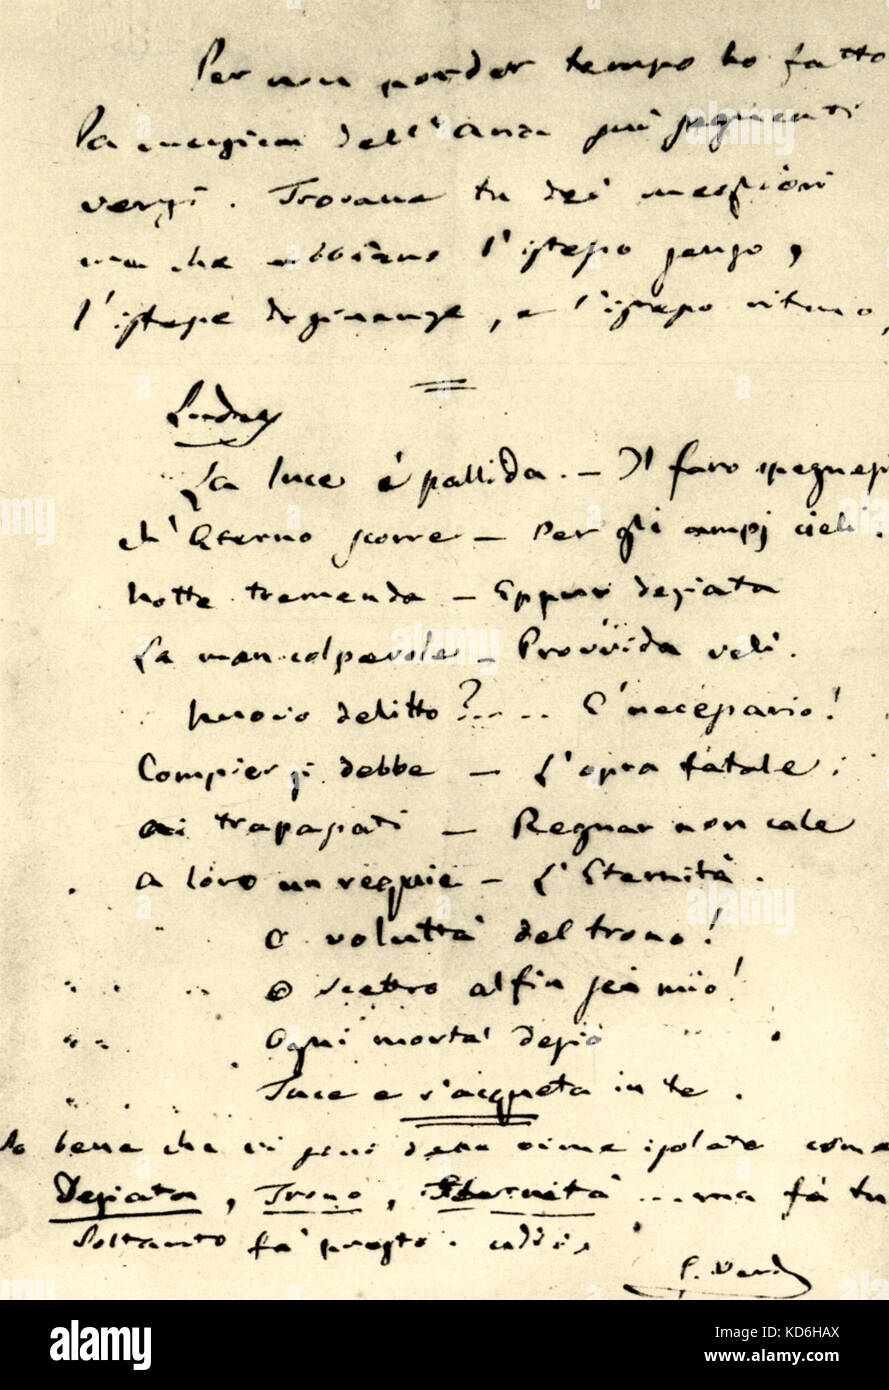 Per non perder tempo ho fatto
la musica dell'aria sui seguenti
versi. Trovane tu dei migliori
ma che abbiano l'istesso senso,
l'istesse desinenze, e l'istesso ritmo,
Lady
La luce è pallida. – Il faro spegnesi
ch'Eterno scorre – Per gli ampj cieli.
Notte tremenda – Eppur desiata
La man colpevole – Provvida veli.
Nuovo delitto?..... E' necessario!
Compier si debbe – L'opra fatale.
Ai trapassati – Regnar non cale
A loro un requie – L'Eternità.
O voluttà del trono!
O scettro alfin sei mio!
Ogni mortal desio
Tace e s'acqueta in te.
So bene che vi sono delle rime isolate come
Desiata, Trono, Eternità ... ma fa tu
Soltanto fa presto. addio
G. Verdi
alamy
alamy
alamy
alamy
alamy
alamy
alamy
Image ID: KD6HAX
www.alamy.com